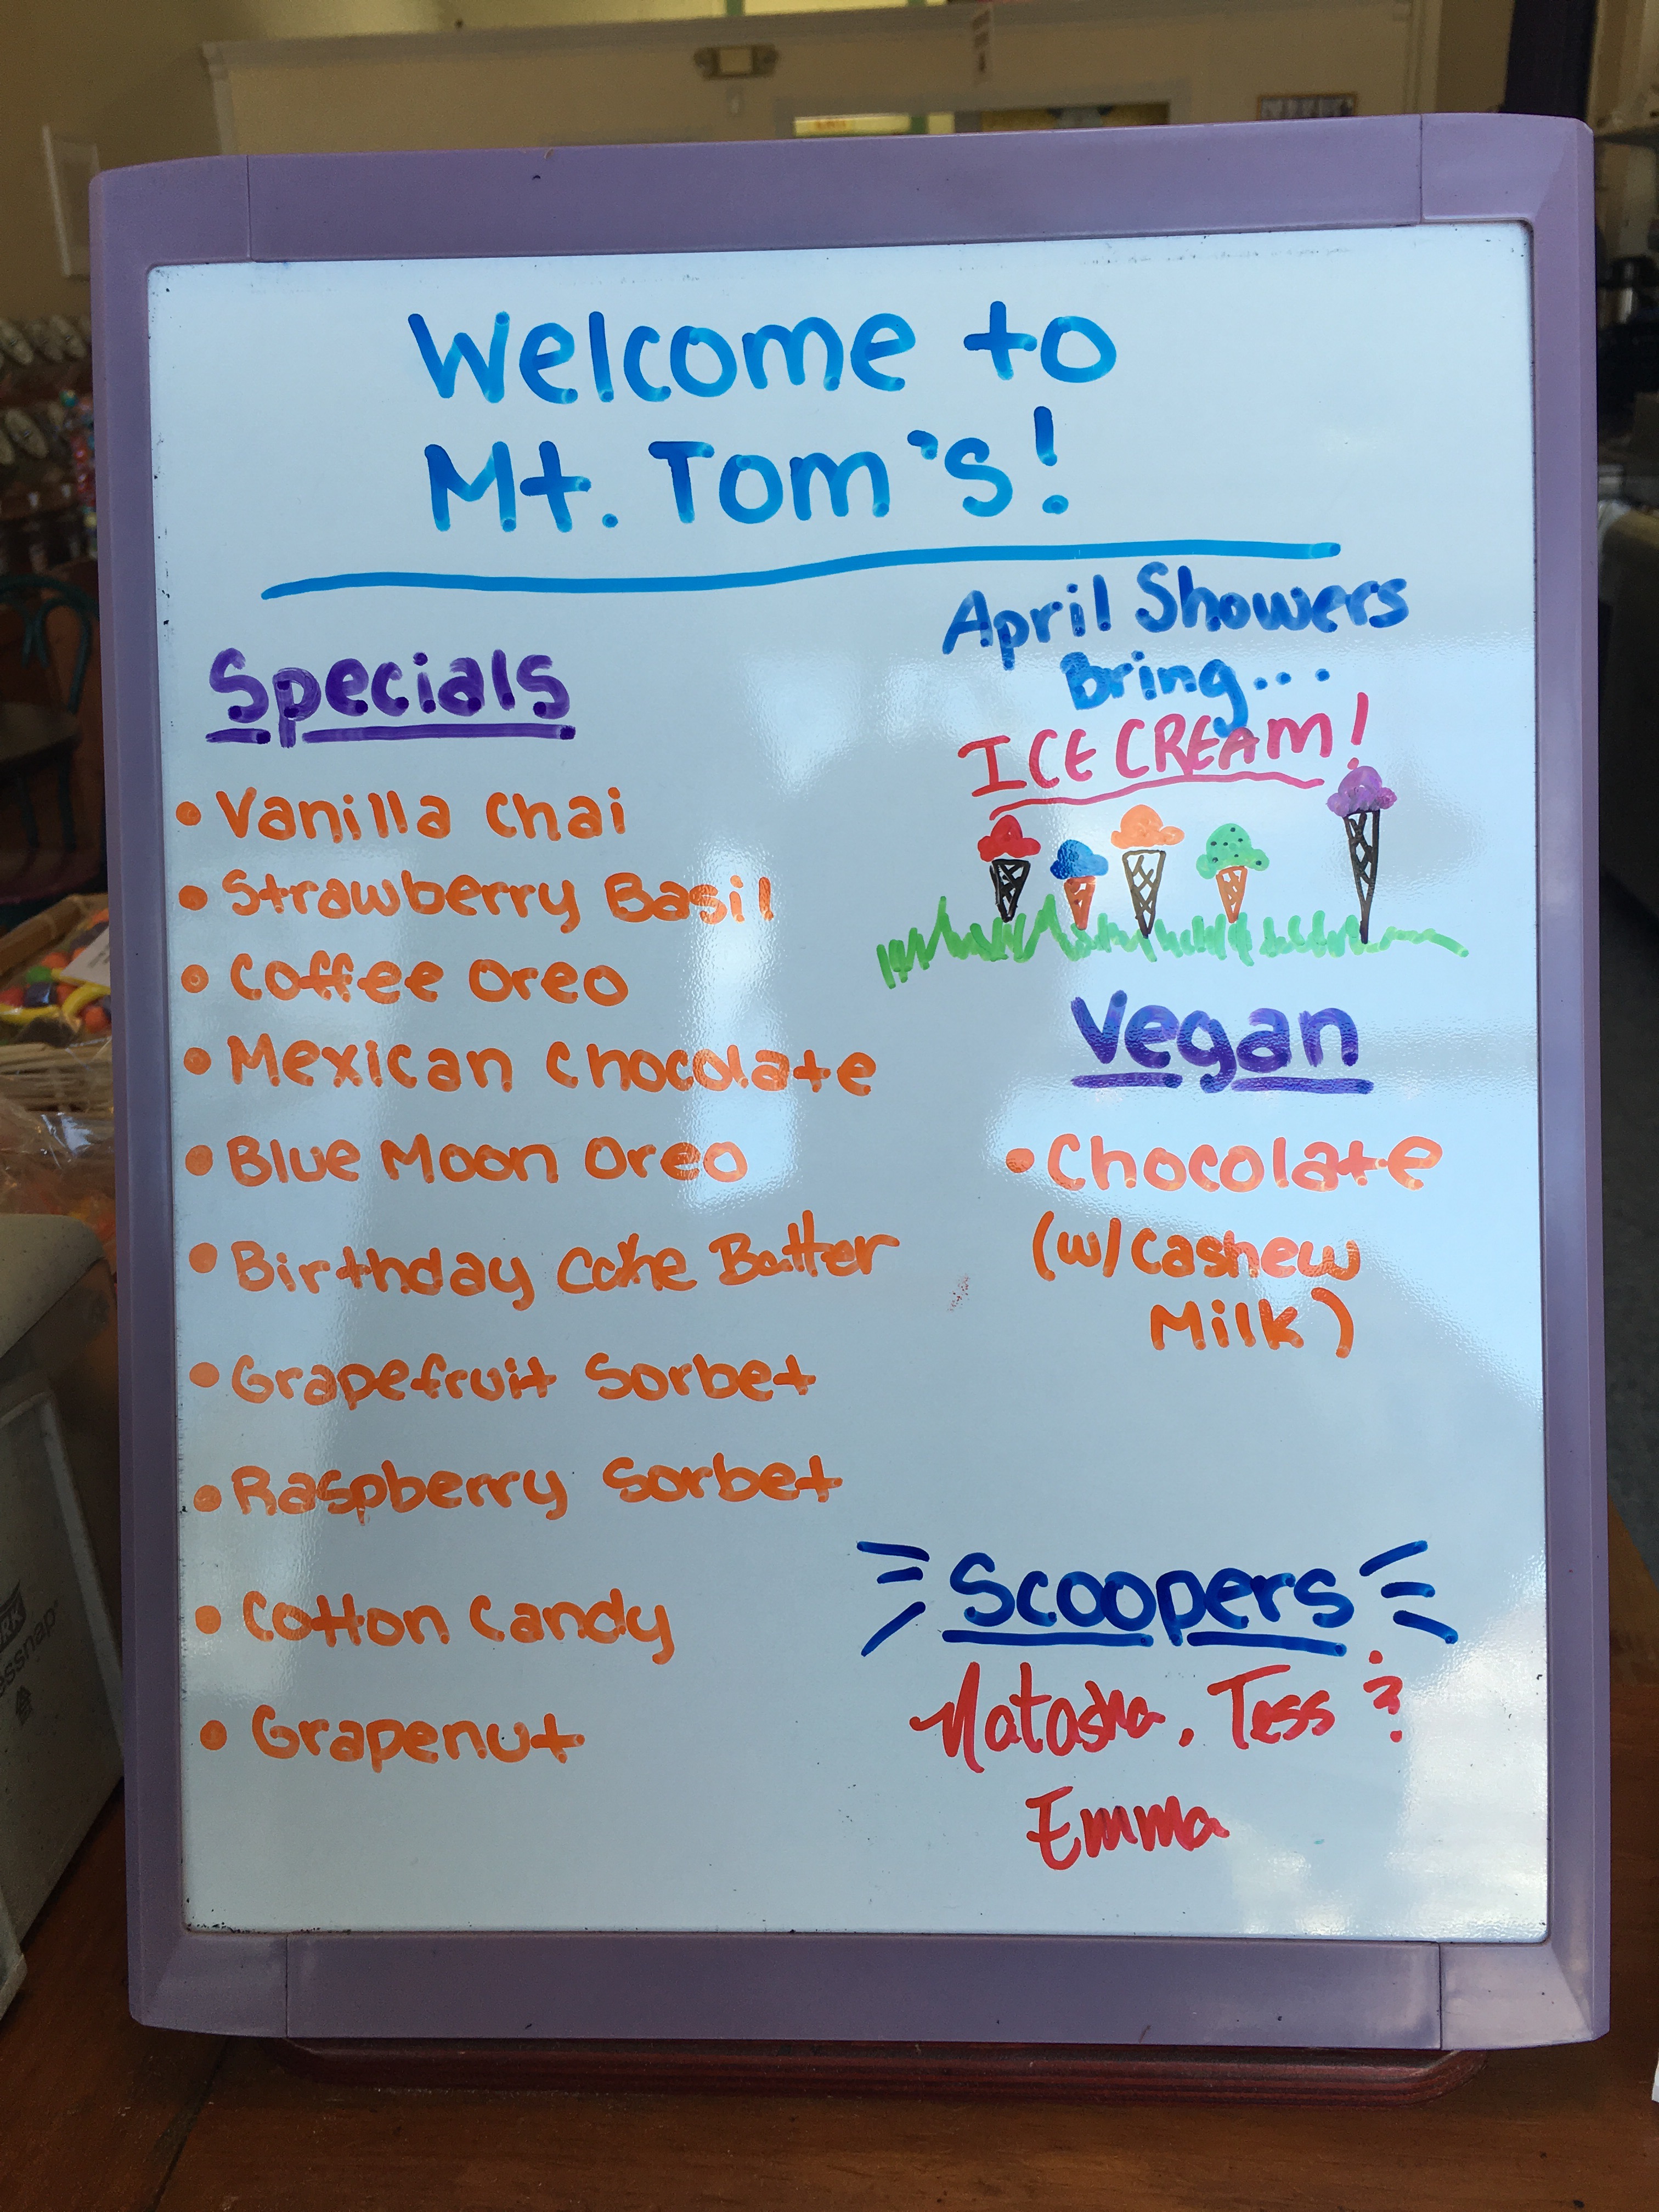 Welcome to
Mt. Tom's!
Specials
• Vanilla Chai
• Strawberry Basil
• Coffee Oreo
• Mexican Chocolate
• Blue Moon Oreo
• Birthday Cake Batter
• Grapefruit Sorbet
• Raspberry Sorbet
• Cotton Candy
• Grapenut
April Showers
Bring...
ICE CREAM!
Vegan
• Chocolate
(w/ Cashew
Milk)
Scoopers
Natasha, Tess &
Emma